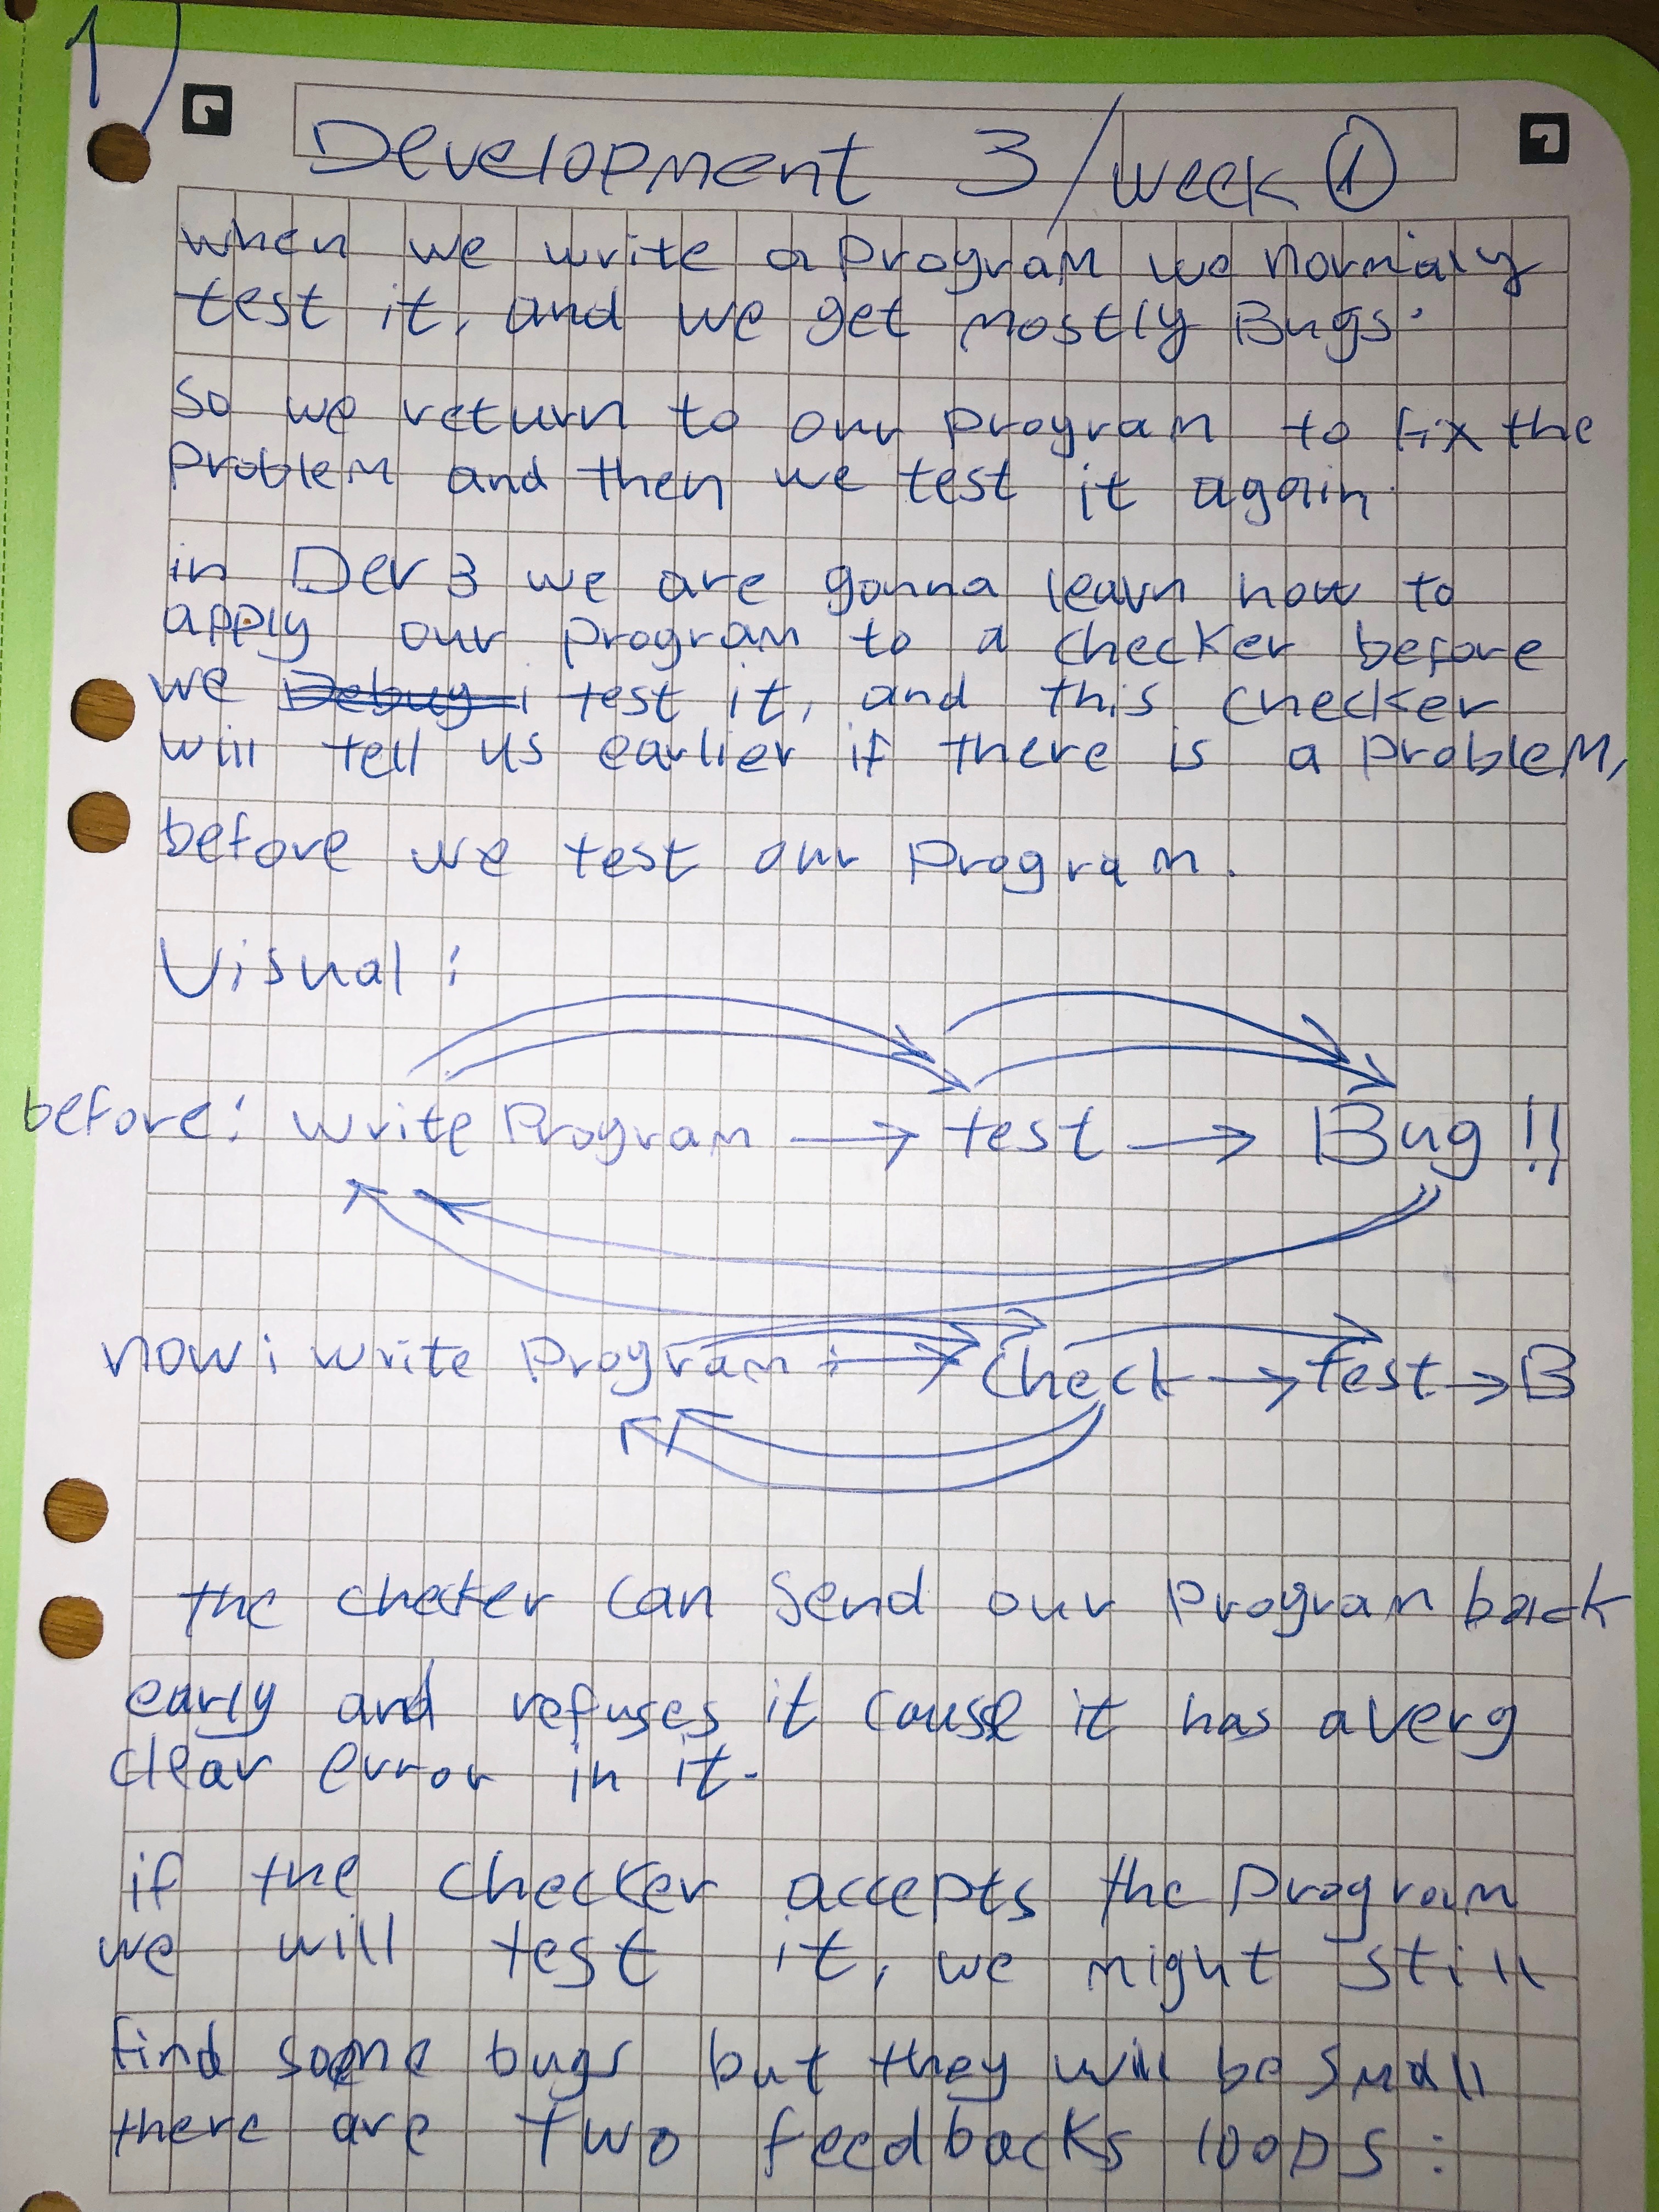 1)
Development 3 / week ①
when we write a Program we normaly
test it, and we get mostly Bugs.
So we return to our program to fix the
Problem and then we test it again.
in Dev 3 we are gonna learn how to
apply our program to a checker before
we Debug test it, and this checker
will tell us earlier if there is a problem,
before we test our Program.
Visual:
before: write Program → test → Bug !!
now: write Program → Check → test → B
the checker can send our Program back
early and refuses it cause it has a verg
clear error in it.
if the checker accepts the Program
we will test it, we might still
find some bugs but they will be small
there are two feedbacks loops: